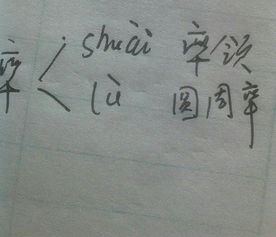 shuài 率领
率
lǜ 圆周率